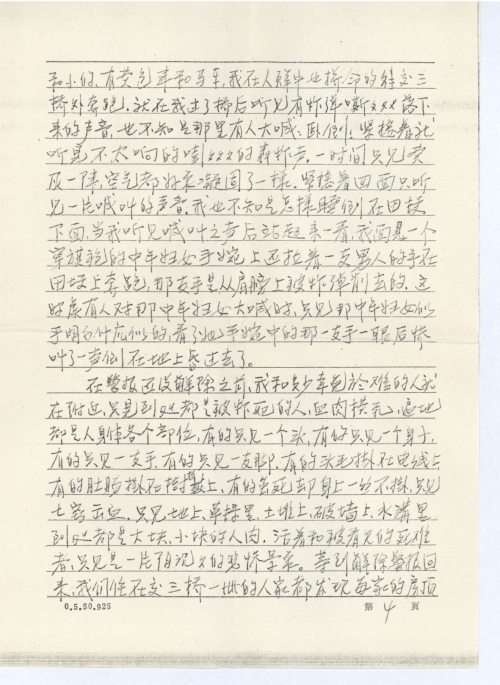 和小的,有黄包车和马车,我在人群中也拼命的往交三
桥外奔跑,就在我出了桥后听见有炸弹嘶XXX落下
来的声音,也不知是那里有人大喊:卧倒!紧接着就
听见不太响的嗡XXX的轰炸声,一时间只见
及一阵,空气都好象凝固了一样。紧接着四面只听
见一片喊叫的声音,我也不知是怎样睡倒在田埂
下面,当我听见喊叫之声后站起来一看,我面见一个
穿旗袍的中年妇女手腕上还拉着一支男人的手在
田埂上奔跑,那支手是从肩膀上被炸弹削去的。这
好象有人对那中年妇女大喊时,只见那中年妇女似
乎明白什么似的,看了她手腕中的那一支手一眼后惨
叫了一声倒在地上昏过去了。
在警报还没解除之前,我和少幸免於难的人就
在附近,只是到处都是被炸死的人,血肉横飞,遍地
都是人身体各个部位,有的只见一个头,有的只见一个身子,
有的只见一支手,有的只见一支脚,有的头毛掛在电线上
有的肚肠掛在树枝上,有的虽死去却身上一丝不掛,只见
七窍出血,只见地上,草绿里,土堆上,破墙上,水沟里
到处都是大块,小块的人肉,活着和被看见的死难
者,只见是一片阴沉X的悲惨景象。等到解除警报回
来,我们住在交三桥一世的人家都发现每家的房顶
0.5.50.925
第 4 頁